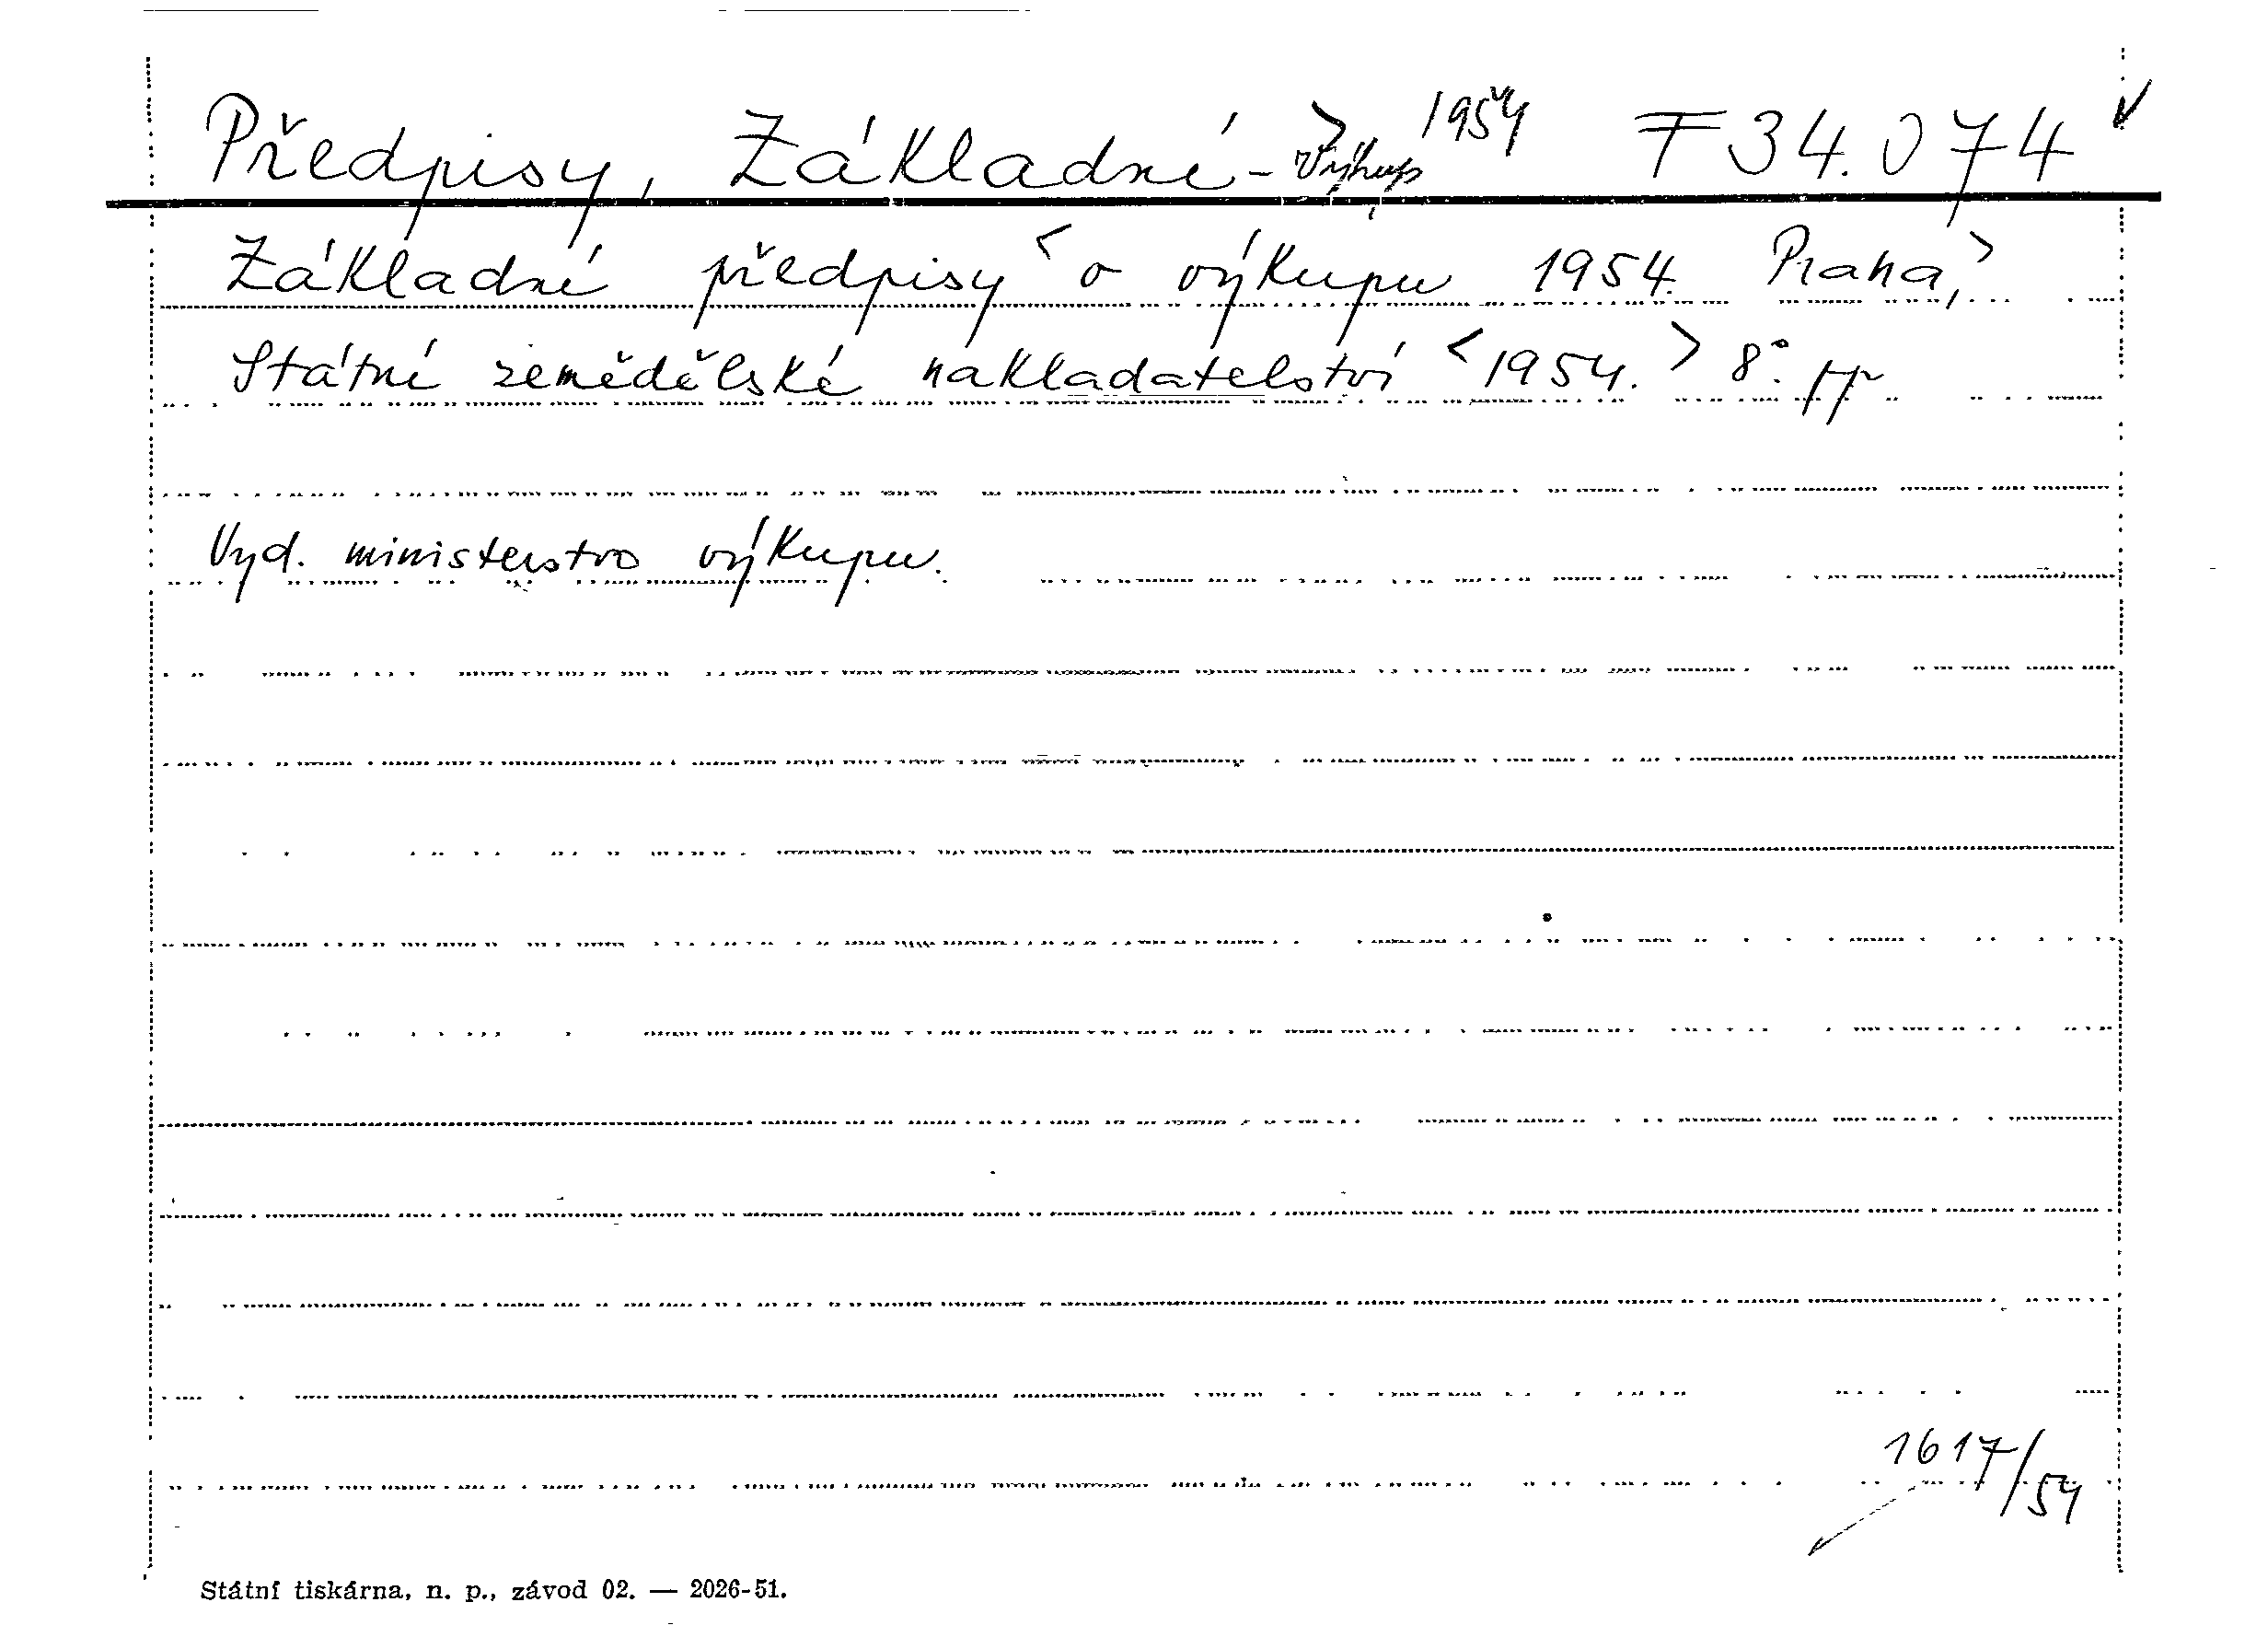 Předpisy, Základní - Výkup 1954 F 34.074
Základní předpisy < o výkupu 1954. Praha, >
Státní zemědělské nakladatelství < 1954. > 8°. pp
Vyd. ministerstvo výkupu.
1617/54
Státní tiskárna, n. p., závod 02. — 2026-51.